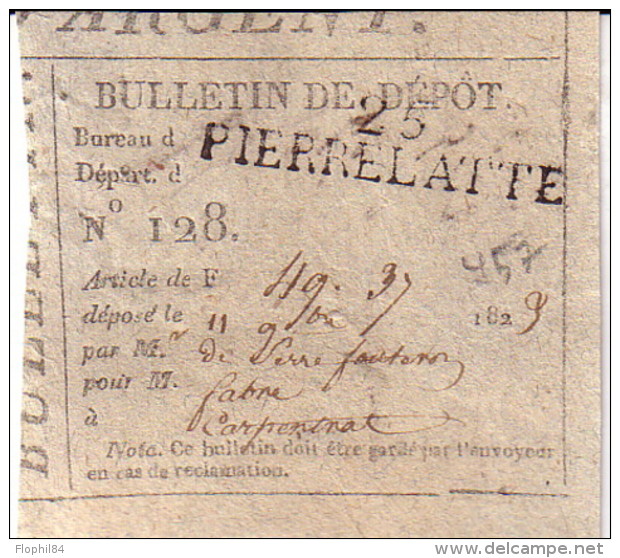 ARGENT.
BULLETIN DE DÉPÔT.
25
Bureau d PIERRELATTE
Départ. d
N° 128.
457
Article de F 49. 37
déposé le 11 9bre 1823
par M.r de Serre
pour M. fabre
à Carpentrat
Nota. Ce bulletin doit être gardé par l'envoyeur
en cas de reclamation.
Flophil84
www.delcampe.net